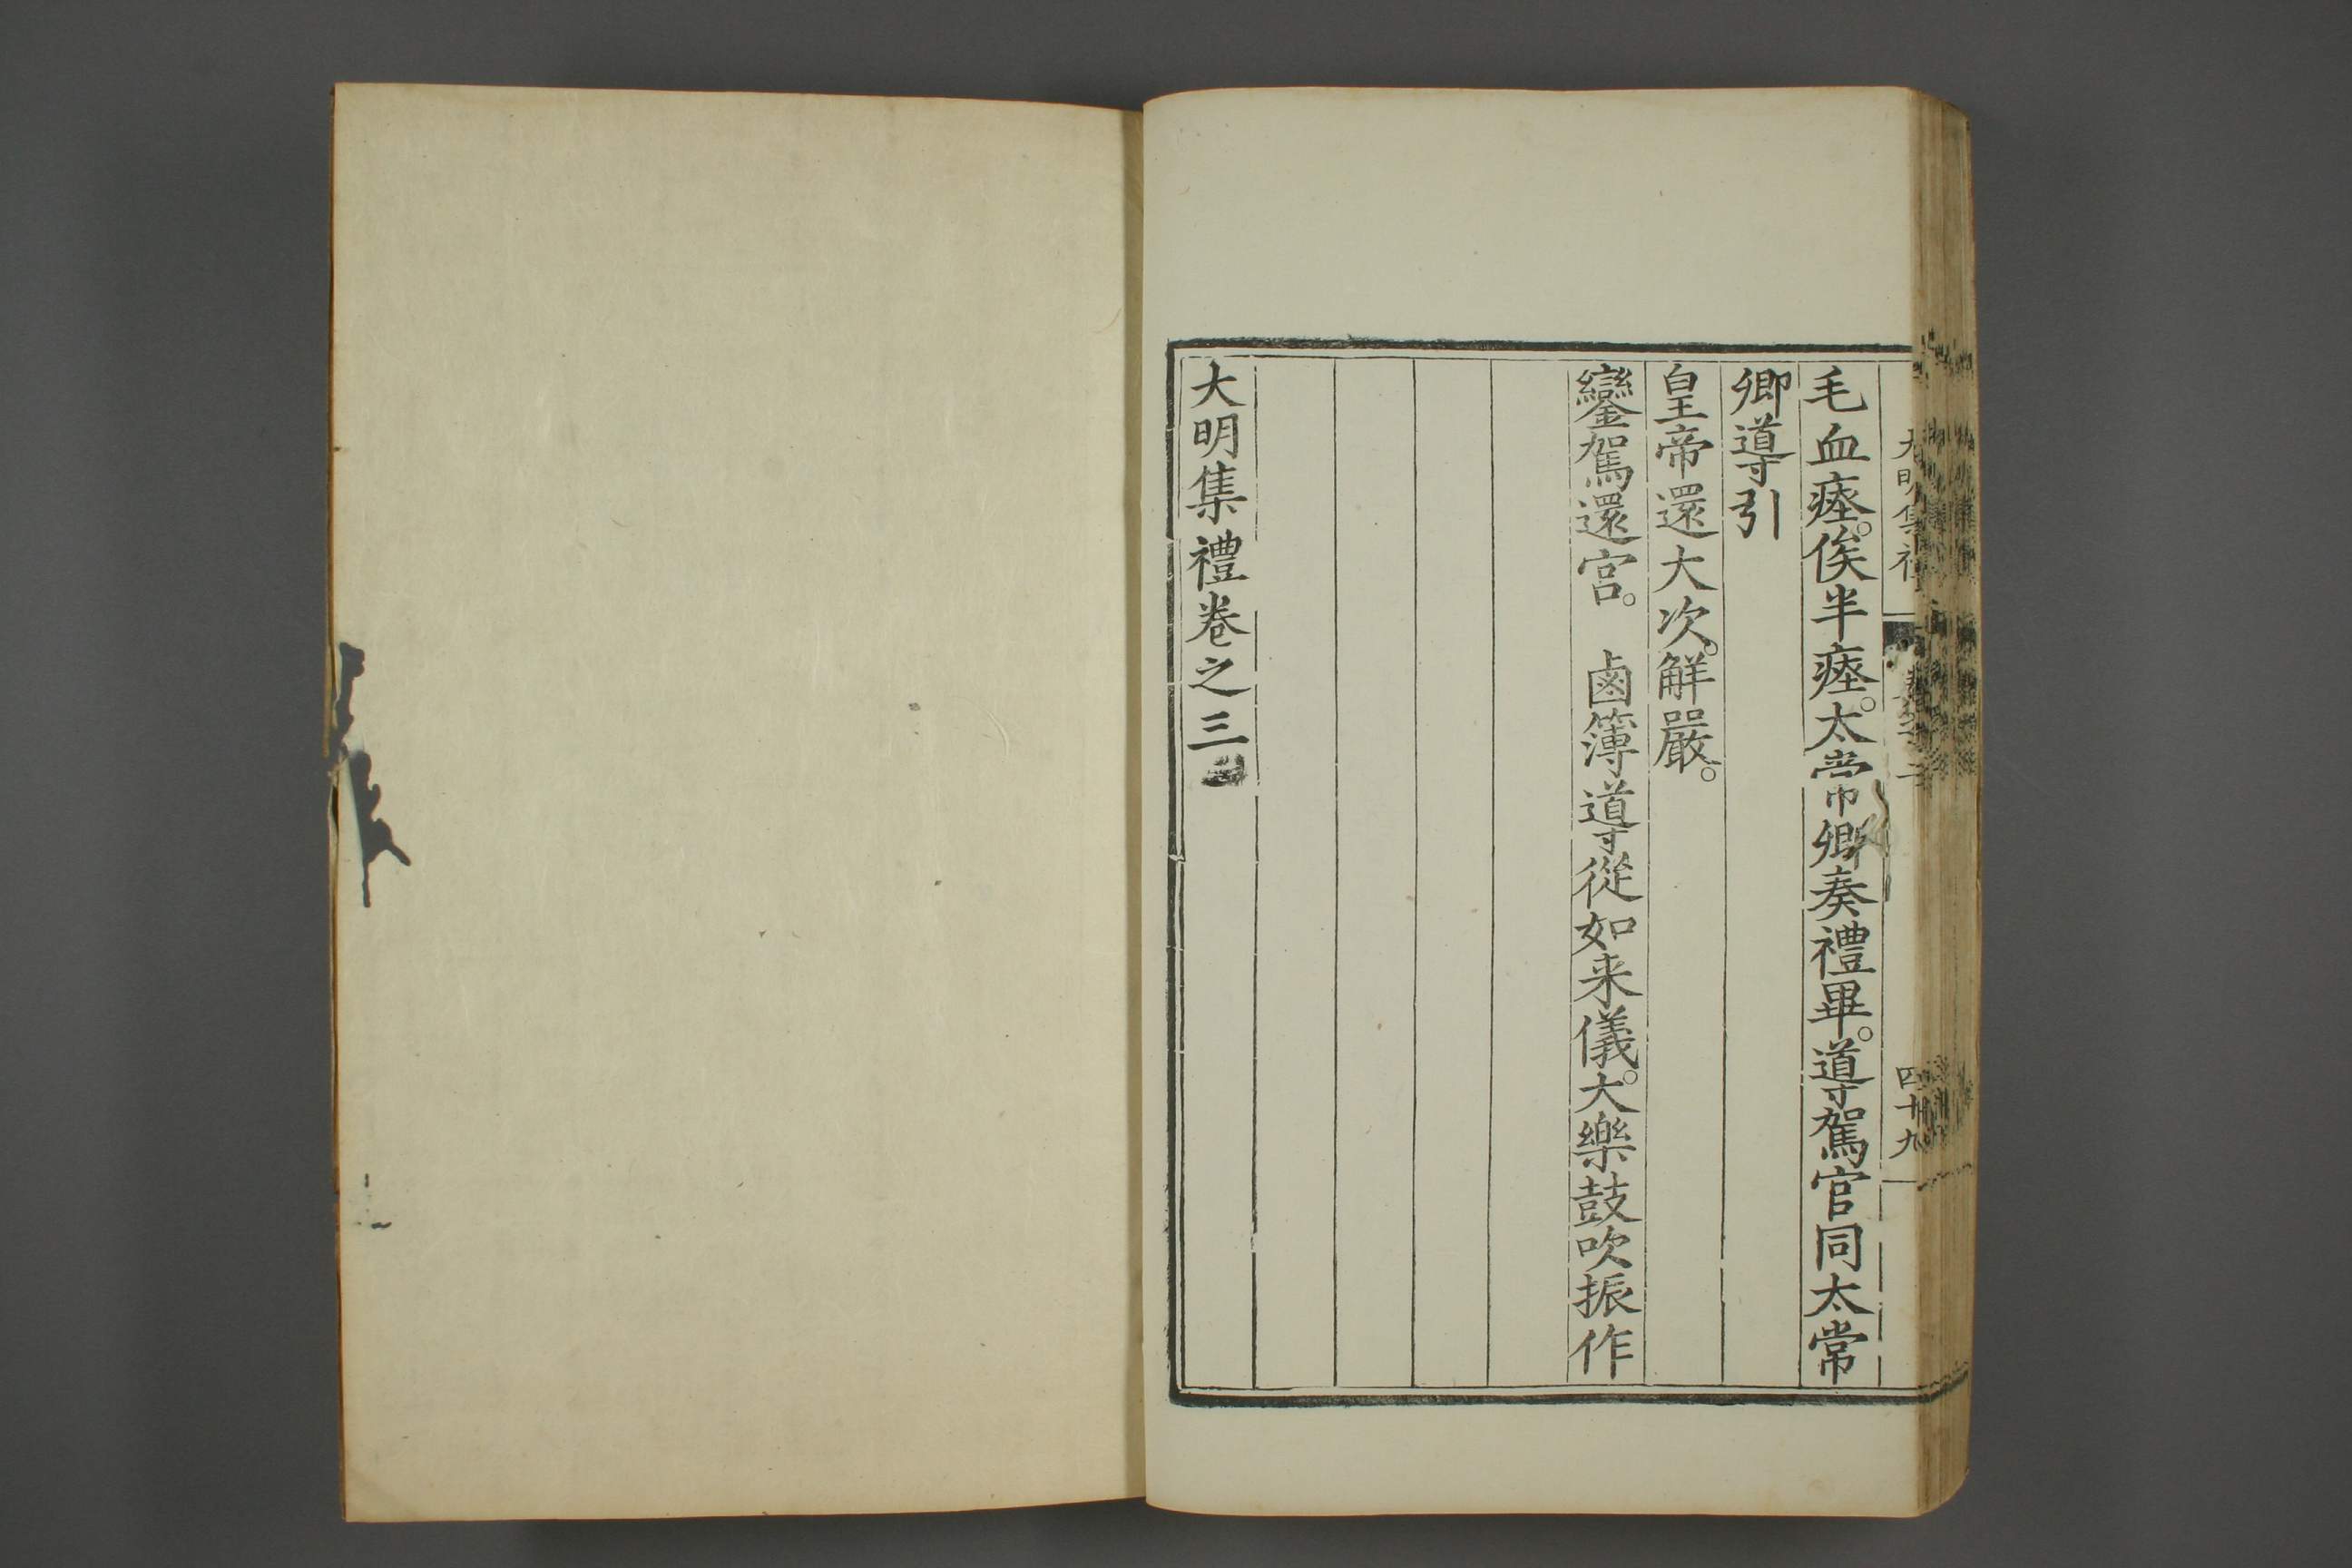 大明集禮
四十九
毛血瘞。俟半瘞。太常卿奏禮畢。導駕官同太常
卿導引
皇帝還大次。解嚴。
鑾駕還宮。 鹵簿導從如来儀。大樂鼓吹振作
大明集禮卷之三